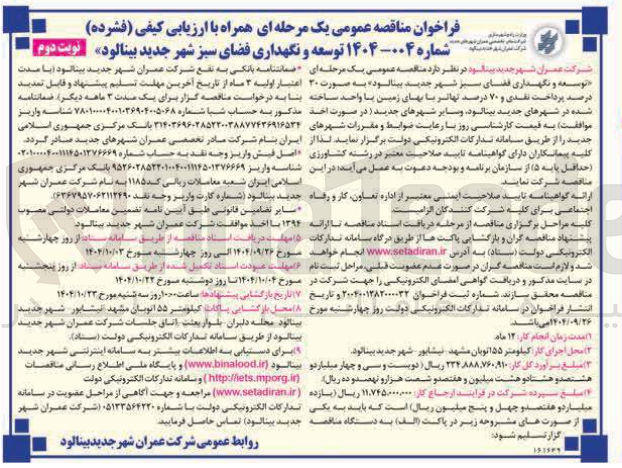 فراخوان مناقصه عمومی یک مرحله ای همراه با ارزیابی کیفی (فشرده)
شماره ۰۰۴-۱۴۰۴ توسعه و نگهداری فضای سبز شهر جدید بینالود»
نوبت دوم
شرکت عمران شهر جدید بینالود در نظر دارد مناقصه عمومی یک مرحله ای
«توسعه و نگهداری فضای سبز شهر جدید بینالود» به صورت ۳۰
درصد پرداخت نقدی و ۷۰ درصد تهاتر با بهای زمین یا واحد ساخته
شده در شهرهای جدید بینالود، وسایر شهرهای جدید (در صورت اخذ
موافقت) به قیمت کارشناسی روز با رعایت ضوابط و مقررات شهرهای
جدید را از طریق سامانه تدارکات الکترونیکی دولت برگزار نماید. لذا از
کلیه پیمانکاران دارای گواهینامه تایید صلاحیت معتبر در رشته کشاورزی
(حداقل پایه ۵) از سازمان برنامه و بودجه دعوت به عمل می‌آید؛ در این
مناقصه شرکت نمایند.
ارائه گواهینامه تایید صلاحیت ایمنی معتبر از اداره تعاون، کار و رفاه
اجتماعی برای کلیه شرکت کنندگان الزامیست.
کلیه مراحل برگزاری مناقصه از مرحله دریافت اسناد مناقصه تا ارائه
پیشنهاد مناقصه گران و بازگشایی پاکت ها از طریق درگاه سامانه تدارکات
الکترونیکی دولت (ستاد) به آدرس www.setadiran.ir انجام خواهد
شد و لازم است مناقصه گران در صورت عدم عضویت قبلی، مراحل ثبت نام
در سایت مذکور و دریافت گواهی امضای الکترونیکی را جهت شرکت در
مناقصه محقق سازند. شماره ثبت فراخوان ۲۰۰۴۰۰۱۳۸۲۰۰۰۰۳۲ و تاریخ
انتشار فراخوان در سامانه تدارکات الکترونیکی دولت روز چهارشنبه مورخ
۱۴۰۴/۰۹/۲۶ می‌باشد.
۱)مدت زمان انجام کار: ۱۲ ماه.
۲)محل اجرای کار: کیلومتر ۱۵۵ اتوبان مشهد - نیشابور - شهر جدید بینالود.
۳)مبلغ برآورد کل کار: ۲۳۴.۸۸۸.۷۶۰.۹۱۰ ریال (دویست و سی و چهار میلیارد و
هشتصد و هشتاد و هشت میلیون و هفتصد و شصت هزار و نهصد و ده ریال).
۴)مبلغ سپرده شرکت در فرآیند ارجاع کار: ۱۱.۷۴۵.۰۰۰.۰۰۰ ریال (یازده
میلیارد و هفتصد و چهل و پنج میلیون ریال) است که باید به یکی
از صورت های مشروحه زیر در پاکت (الف) به دستگاه مناقصه
گزار تسلیم شود:
*ضمانتنامه بانکی به نفع شرکت عمران شهر جدید بینالود (با مدت
اعتبار اولیه ۳ ماه از تاریخ آخرین مهلت تسلیم پیشنهاد و قابل تمدید
بنا به درخواست مناقصه گزار برای یک مدت ۳ ماهه دیگر). ضمانتنامه
ایران بنام شرکت مادر تخصصی عمران شهرهای جدید صادر گردد.
*اصل فیش واریز وجه نقد به حساب شماره
بانک مرکزی جمهوری
اسلامی ایران شعبه معاملات ریالی کد ۱۱۸۵ به نام شرکت عمران شهر
*سایر تضامین قانونی طبق آیین نامه تضمین معاملات دولتی مصوب
۱۳۹۴ با اخذ موافقت شرکت عمران شهر جدید بینالود.
۵)مهلت دریافت اسناد مناقصه از طریق سامانه ستاد: از روز چهارشنبه
مورخ ۱۴۰۴/۰۹/۲۶ الی روز چهارشنبه مورخ ۱۴۰۴/۱۰/۰۳
۶)مهلت عودت اسناد تکمیل شده از طریق سامانه ستاد: از روز پنجشنبه
مورخ ۱۴۰۴/۱۰/۰۴ تا روز دوشنبه مورخ ۱۴۰۴/۱۰/۲۲
۷)تاریخ بازگشایی پیشنهادها: ساعت ۱۰:۰۰ روز سه شنبه مورخ ۱۴۰۴/۱۰/۲۳
۸)محل بازگشایی پاکات: کیلومتر ۱۵۵ اتوبان مشهد - نیشابور - شهر جدید
بینالود - محله دلبران - بلوار بعثت - اتاق جلسات شرکت عمران شهر جدید
بینالود از طریق سامانه تدارکات الکترونیکی دولت (ستاد).
۹)برای دستیابی به اطلاعات بیشتر به سامانه اینترنتی شهر جدید
بینالود (www.binalood.ir) و پایگاه ملی اطلاع رسانی مناقصات
(http://iets.mporg.ir) و سامانه تدارکات الکترونیکی دولت
(www.setadiran.ir) مراجعه و جهت آگاهی از مراحل عضویت در سامانه
تدارکات الکترونیکی دولت با شماره ۰۵۱۳۳۵۶۴۲۲۰ (شرکت عمران شهر
جدید بینالود) تماس حاصل فرمایید.
روابط عمومی شرکت عمران شهر جدید بینالود